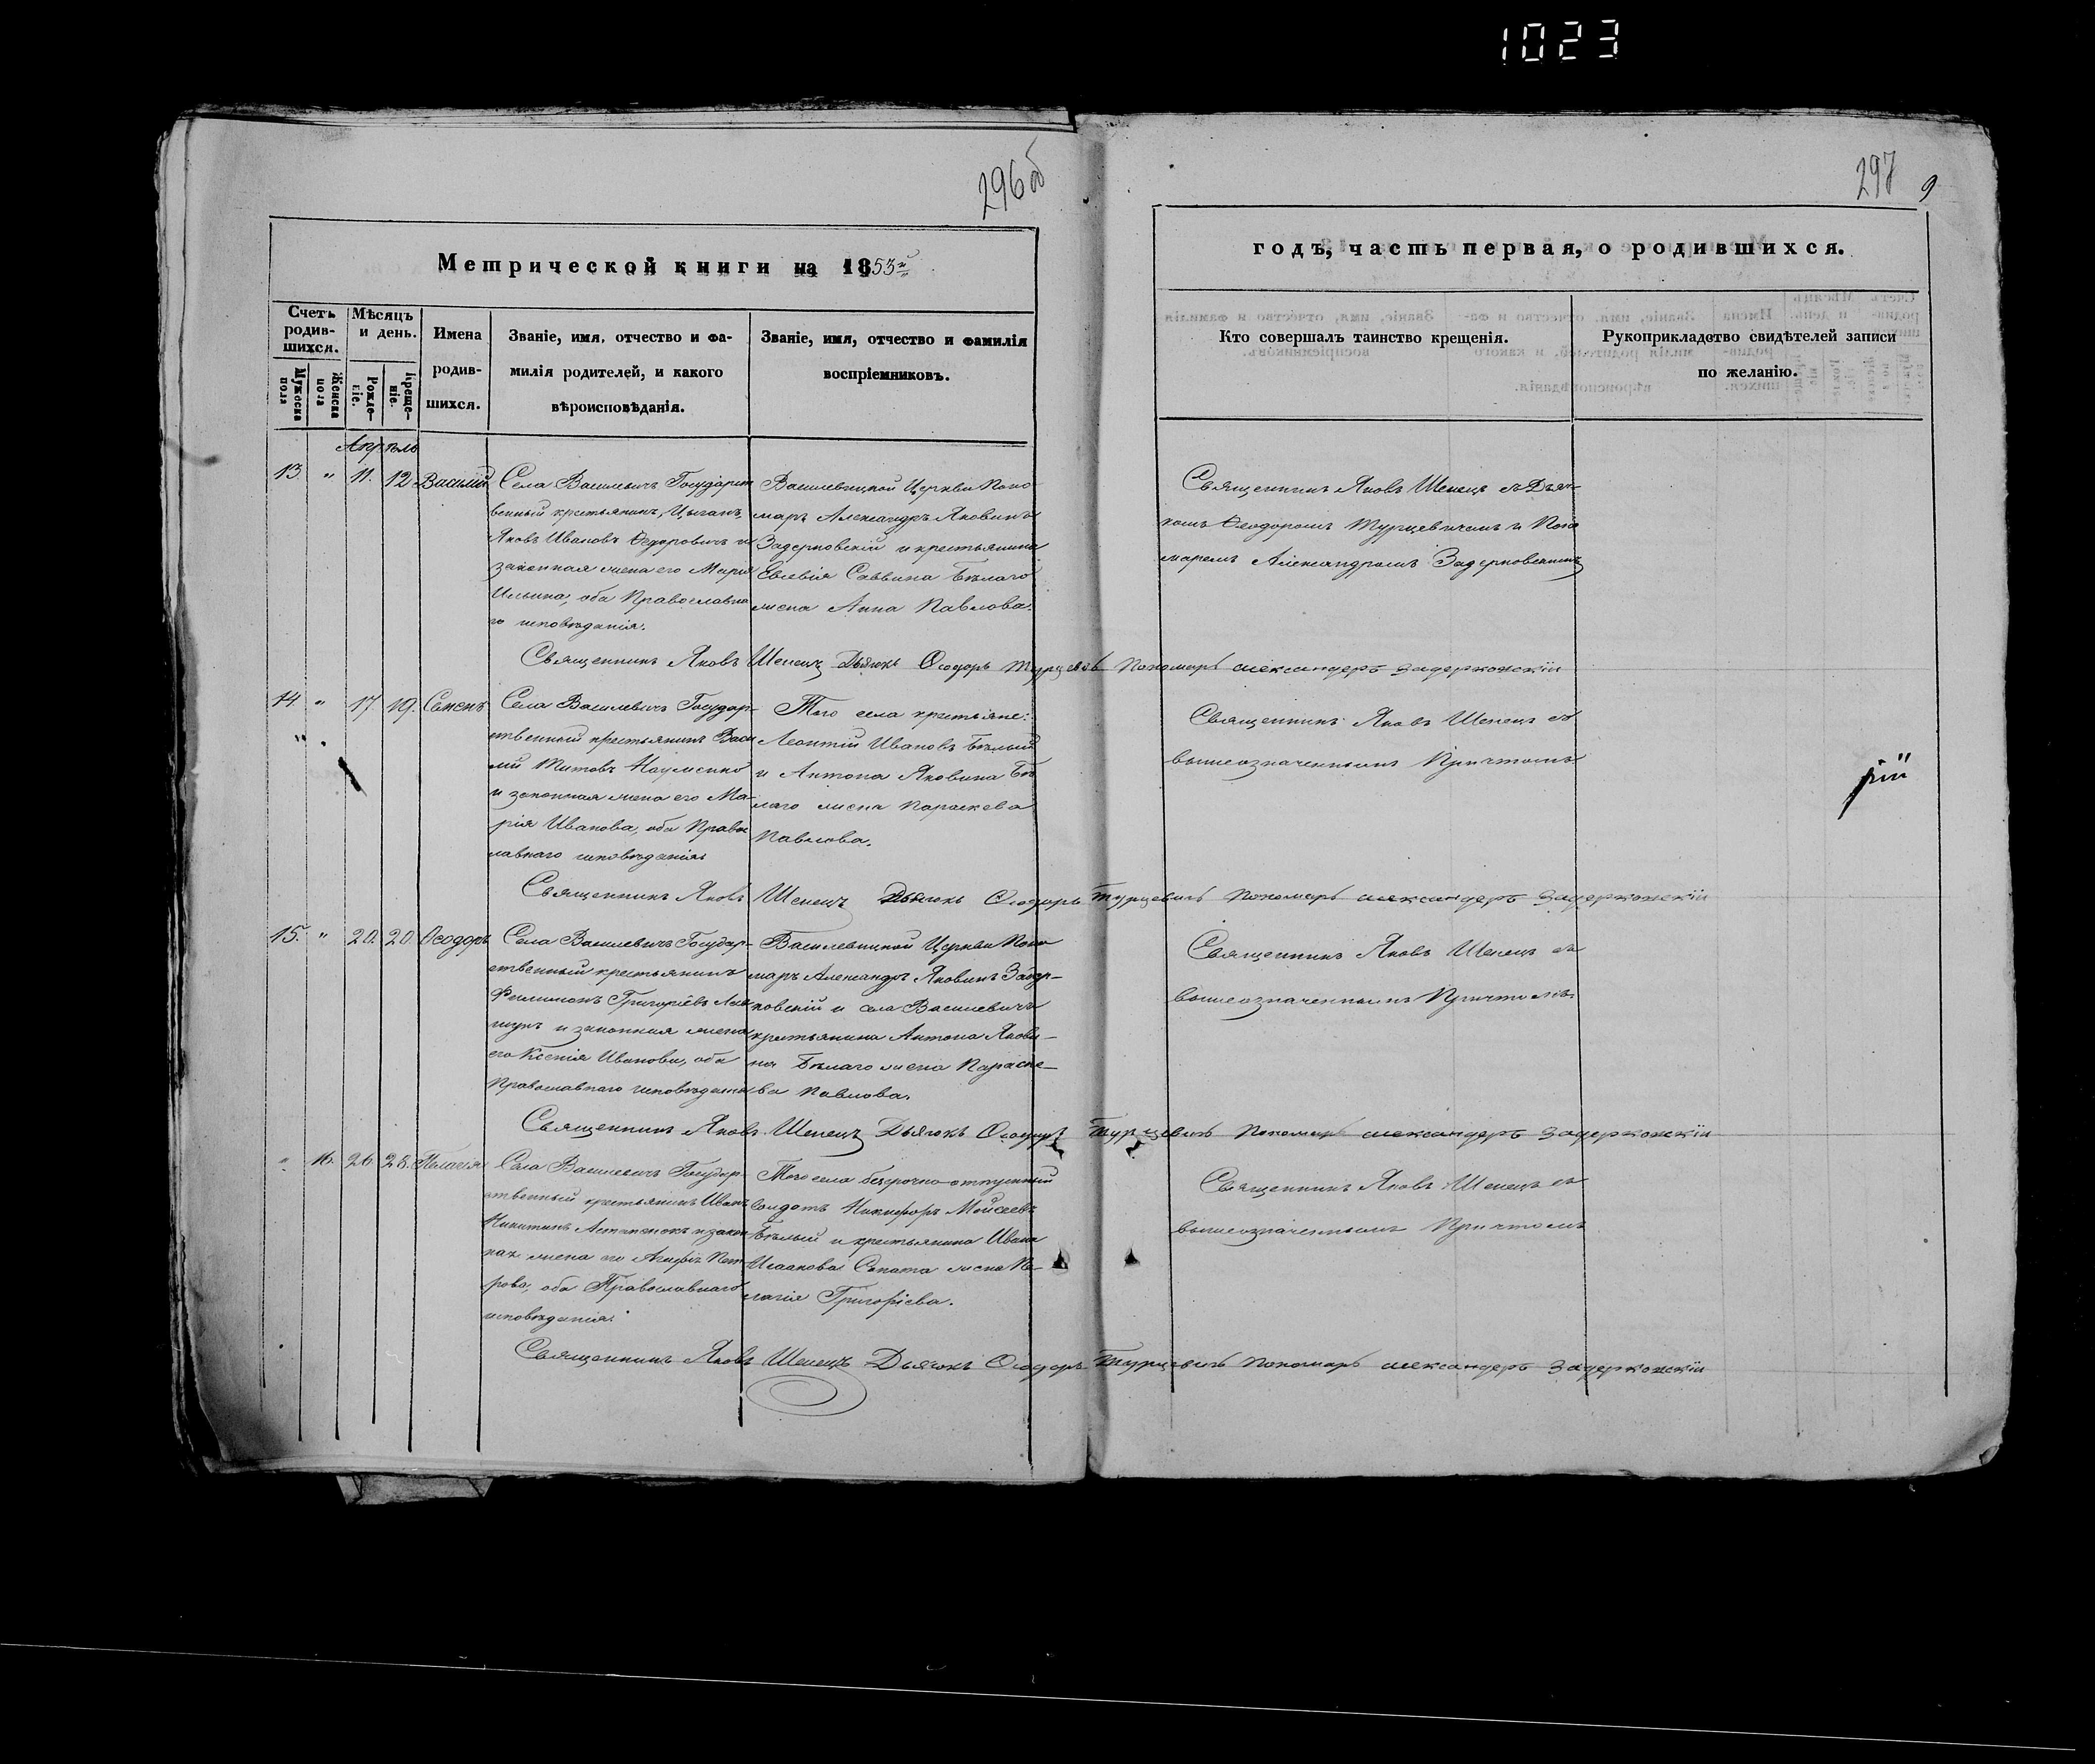 1023
296об
297 9
Метрической книги на 1853й
годъ, часть первая, о родившихся.
Счетъ родив-шихся.
Мужеска пола
Женска пола
Мѣсяцъ и день.
Рожде-ніе.
Креще-ніе.
Имена родив-шихся.
Званіе, имя, отчество и фа-
милія родителей, и какого
вѣроисповѣданія.
Званіе, имя, отчество и фамилія
воспріемниковъ.
Кто совершалъ таинство крещенія.
Рукоприкладство свидѣтелей записи
по желанію.
Апрѣль
13 " 11. 12 Василій
Села Василевичъ Государст
венный крестьянинъ, Цыганъ,
Яковъ Ивановъ Федоровичъ и
законная жена его Марія
Ильина, оба Православна
го исповѣданія.
Василевицкой Церкви Поно
марь Александръ Яковинъ
Задерковскій и крестьянина
Евсевія Саввина Бѣлаго
жена Анна Павлова.
Священникъ Яковъ Шепецъ съ Дьяч-
комъ Ѳеодоромъ Турцевичемъ и Поно
маремъ Александромъ Задерковскимъ
Священникъ Яковъ Шепецъ Дьячокъ Ѳеодоръ Турцевичъ Пономарь александеръ задерковскій
14. " 17. 19. Семенъ
Села Василевичъ Государ-
ственный крестьянинъ Васи
лій Титовъ Науменко
и законная жена его Ма-
рія Иванова, оба Правос
лавнаго исповѣданія
Того села крестьяне:
Леонтій Ивановъ Бѣлый
и Антона Яковина Бѣ
лаго жена Параскева
Павлова.
Священникъ Яковъ Шепецъ съ
вышеозначеннымъ Причтомъ
рій
Священникъ Яковъ Шепецъ Дьячокъ Ѳеодоръ Турцевичъ Пономарь александеръ Задерковскій
15. " 20. 20 Ѳеодоръ
Села Василевичъ Государ-
ственный крестьянинъ
Филимонъ Григорьевъ
и законная жена
его Ксенія Иванова, оба
Православнаго исповѣданія
Василевицкой Церкви Поно
марь Александръ Яковинъ Задер-
ковскій и села Василевичъ
крестьянина Антона Якови-
на Бѣлаго жена Параске-
ва Павлова.
Священникъ Яковъ Шепецъ съ
вышеозначеннымъ Причтомъ
Священникъ Яковъ Шепецъ Дьячокъ Ѳеодоръ Турцевичъ Пономарь александеръ Задерковскій
" 16. 26 28. Пелагія
Села Василевичъ Государ-
ственный крестьянинъ Иванъ
Никитинъ и закон
ная жена его Пет-
рова, оба Православнаго
исповѣданія.
Того села безсрочно-отпускный
солдатъ Никифоръ Мойсеевъ
Бѣлый и крестьянина Ивана
Исаакова жена Пе-
лагія Григорьева.
Священникъ Яковъ Шепецъ съ
вышеозначеннымъ Причтомъ
Священникъ Яковъ Шепецъ Дьячокъ Ѳеодоръ Турцевичъ Пономарь александеръ Задерковскій